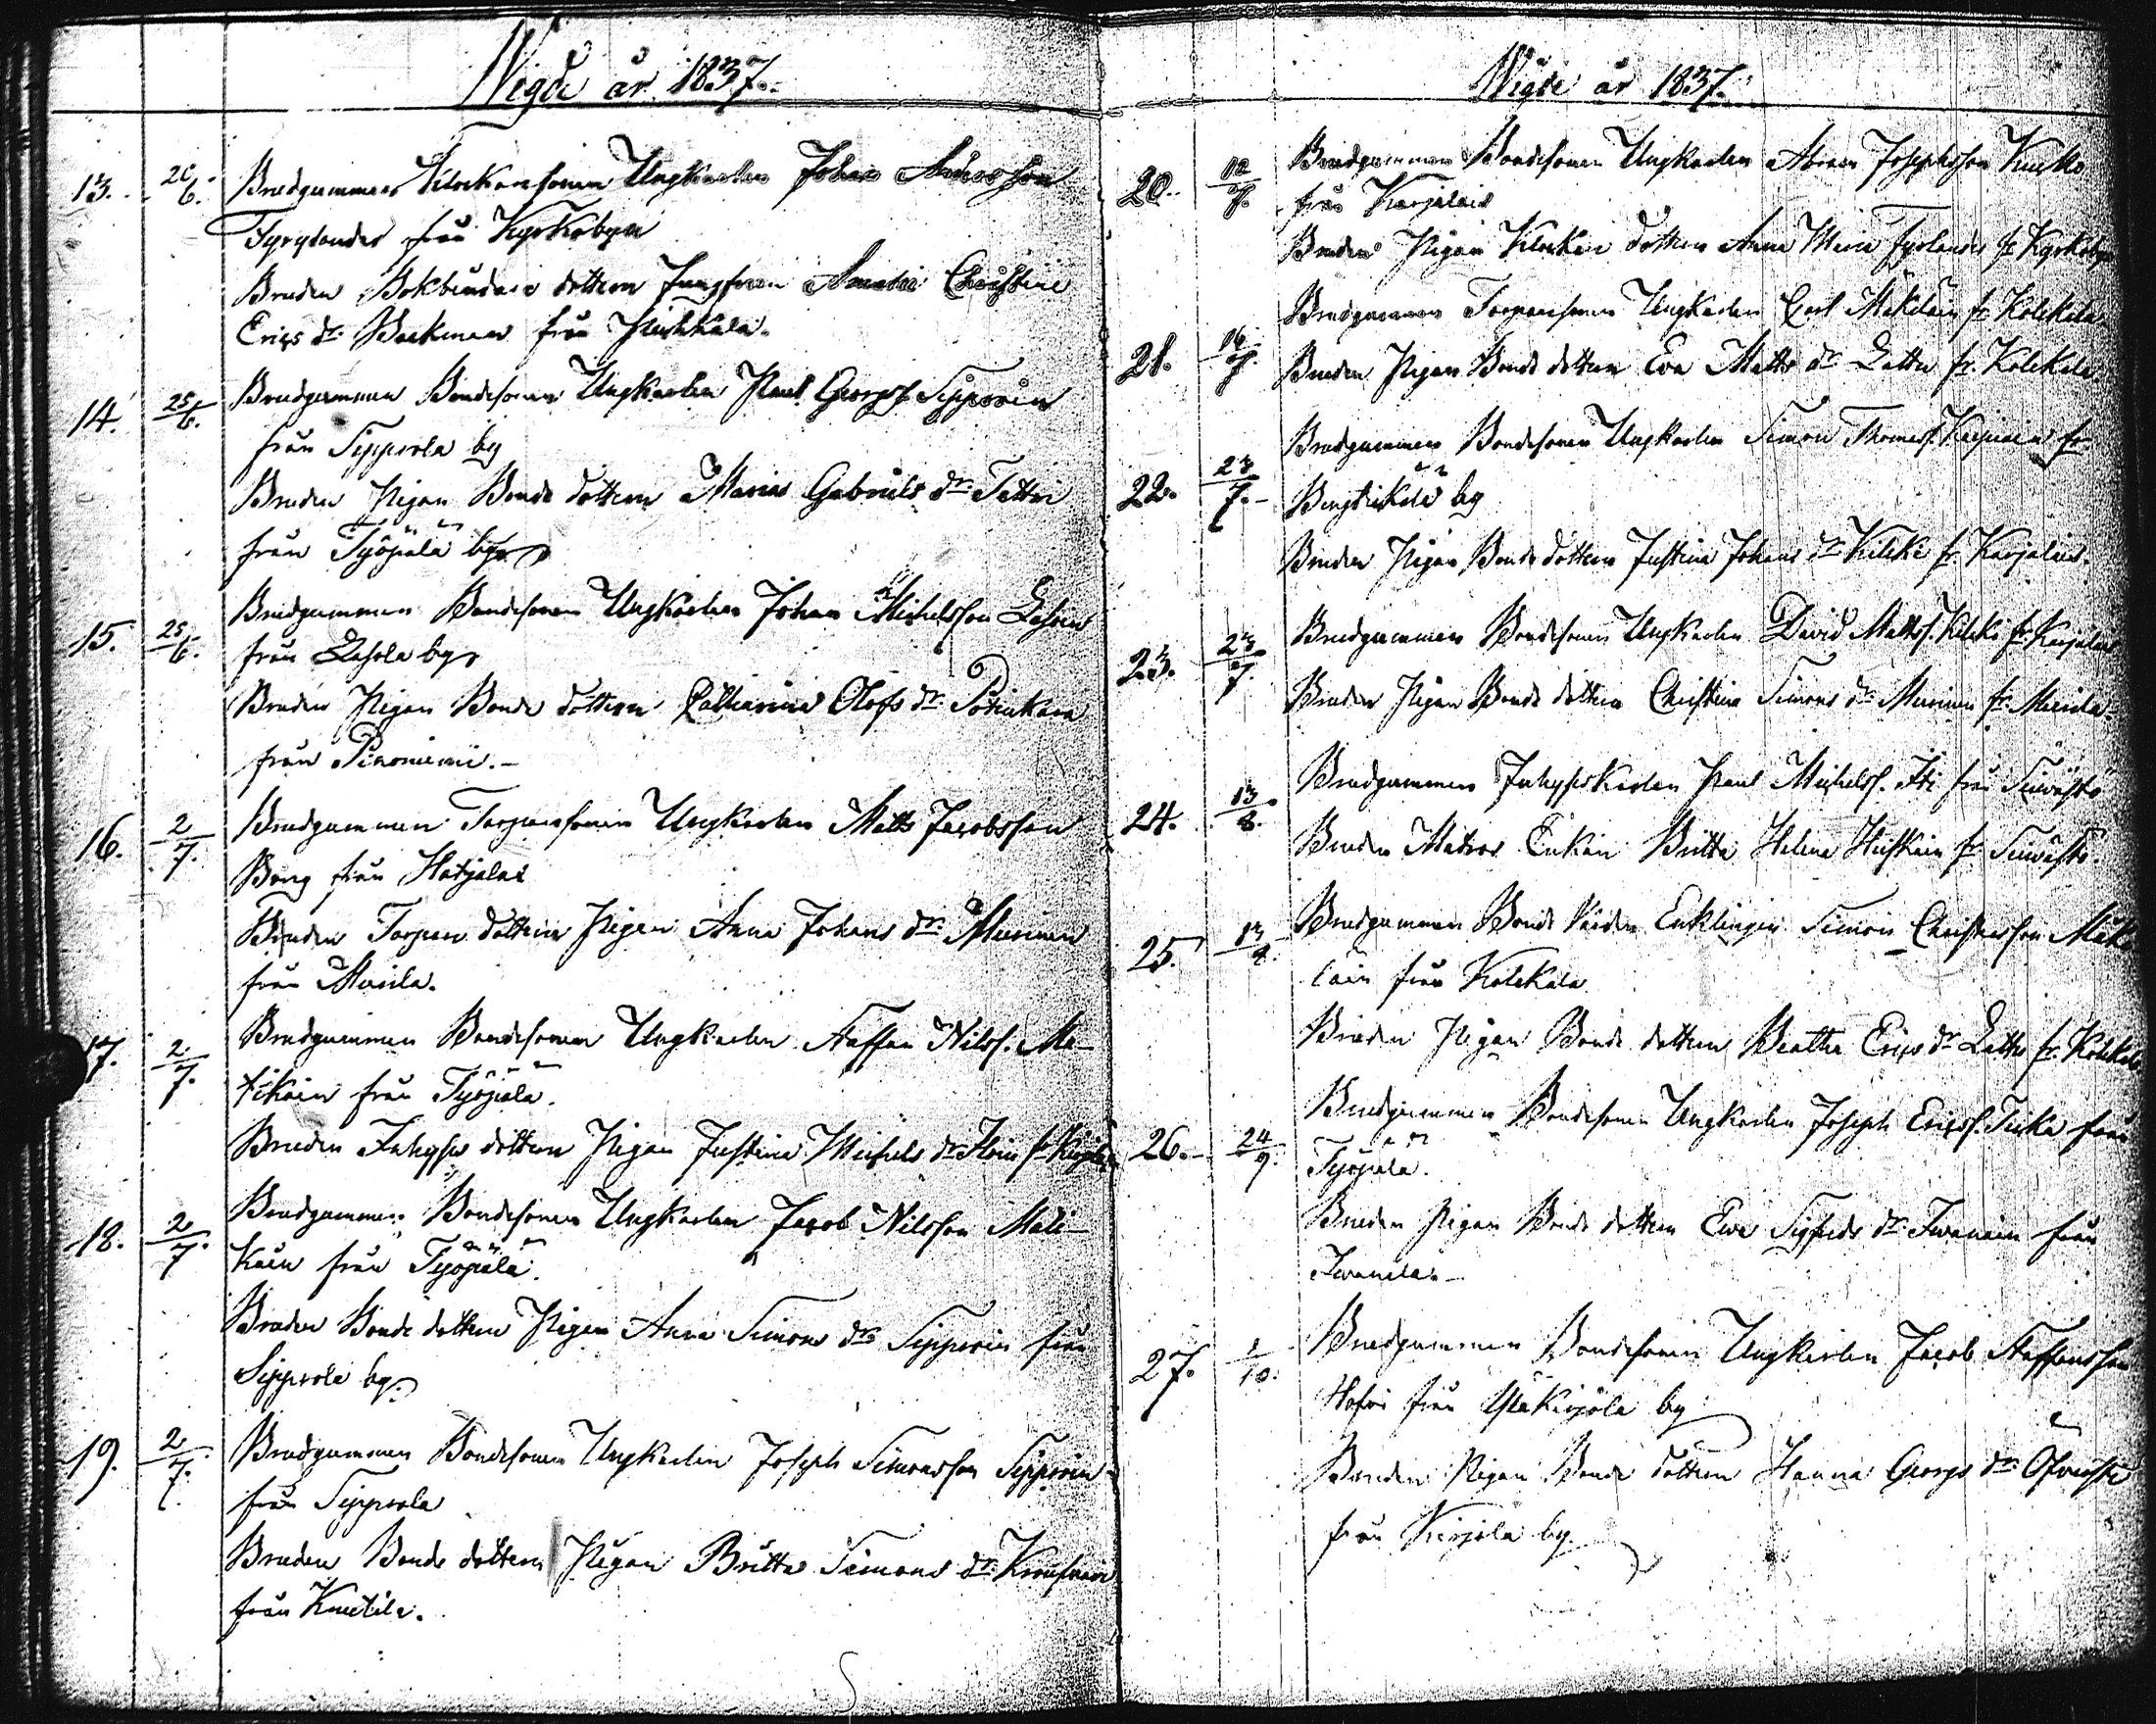 Wigde år 1837.
13. 26/6. Brudgummen Klockaresonen Ungkarlen Johan Andersson
Fyrylander från Kyrkobyn
Bruden Bokbindare dottern Jungfrun Amalia Christina
Erics dr. Backman från
14. 25/6. Brudgumman Bondesonen Ungkarlen Paul Georgs. Sipproin
från Sipprola by
Bruden Pigan Bonde dottern Maria Gabriels dr. Tattri
från Työpölä by
15. 25/6. Brudgumman Bondesonen Ungkarlen Johan Michelsson
från by
Bruden Pigan Bonde dottern Catharina Olofs dr.
från Pinoniemi.
16. 2/7. Brudgumman Torparesonen Ungkarlen Matts Jacobsson
Bong från Hatjalax
Bruden Torpare dottern Pigan Anna Johans dr. Murinen
från Maisila.
17. 2/7. Brudgumman Bondesonen Ungkarlen Staffan Nilss. Ma-
tikain från Työpölä.
Bruden Inhyses dottern Pigan Justina Michels dr.
18. 2/7. Brudgumman Bondesonen Ungkarlen Jacob Nilsson Mati-
kain från Työpölä.
Bruden Bonde dottern Pigan Anna Simons dr. Sipproin från
Sipprola by.
19. 2/7. Brudgumman Bondesonen Ungkarlen Joseph Simonsson Sipproin
från Sipprola
Bruden Bonde dottern Pigan Britta Simons dr.
från Knutila.
Wigde år 1837.
20. 12/7. Brudgumman Bondesonen Ungkarlen Abram Josephsson
från Karjalais
Bruden Pigan Klockare dottern Anna Maria fr. Kyrkobyn
21. 16/7. Brudgumman Torparesonen Ungkarlen Carl Mäkiläin fr. Kolckala.
Bruden Pigan Bonde dottern Eva Matts dr. Lattu fr. Kolckala.
22. 23/7. Brudgumman Bondesonen Ungkarlen Simon Thomass. fr.
by
Bruden Pigan Bonde dottern Justina Johans dr. Kilcki fr. Karjalais.
23. 23/7. Brudgumman Bondesonen Ungkarlen David Mattss. Kilcki fr. Karjalais
Bruden Pigan Bonde dottern Christina Simons dr. Murinen fr. Maisila.
24. 13/8. Brudgumman Inhyseskarlen Paul Michelss. från Seiwästö
Bruden Matros Enkan Britta Helena fr. Seiwästö.
25. Brudgumman Bonde Enklingen Simon Christersson Mäki-
läin från Kolckala.
Bruden Pigan Bonde dottern Beatta Erics dr. Lattu fr. Kolckala
26. 24/9. Brudgumman Bondesonen Ungkarlen Joseph Ericss. från
Työpölä.
Bruden Pigan Bonde dottern Eva Sigfreds dr. Iwanain från
Iwanala.
27. 1/10. Brudgumman Bondesonen Ungkarlen Jacob Staffansson
från Yläkirjola by
Bruden Pigan Bonde dottern Hanna Georgs dr.
från Kirjola by.